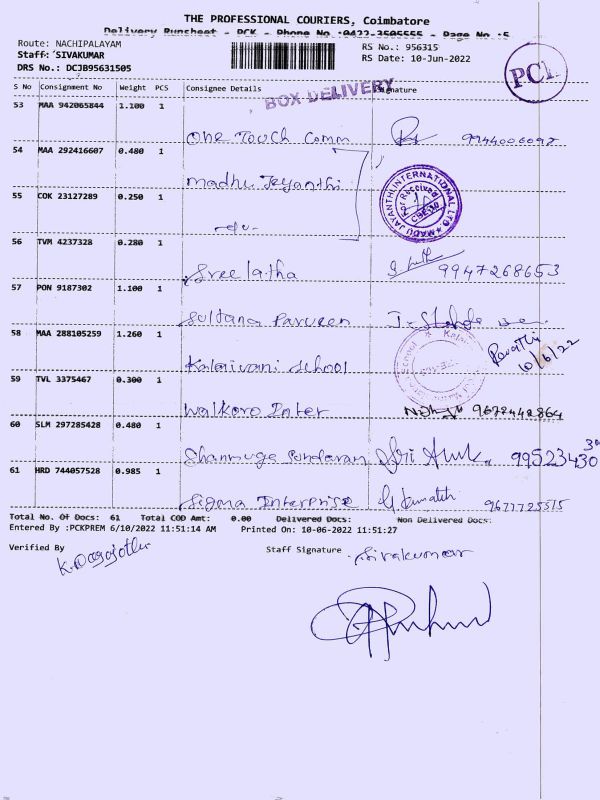 THE PROFESSIONAL COURIERS, Coimbatore
Delivery Runsheet - PCK - Phone No.:0422-3505555 - Page No.:5
Route: NACHIPALAYAM
Staff: SIVAKUMAR
DRS No.: DCJB95631505
RS No.: 956315
RS Date: 10-Jun-2022
PCK
S No Consignment No Weight PCS Consignee Details Signature
BOX DELIVERY
53 MAA 942065844 1.100 1
One Touch Comm 9944006097
54 MAA 292416607 0.480 1
Madhu Jeyanthi
MADU JAYANTHI INTERNATIONAL LTD
For Received
55 COK 23127289 0.250 1
-do-
56 TVM 4237328 0.280 1
Sree latha 9947268653
57 PON 9187302 1.100 1
Sultana Parveen
58 MAA 288105259 1.260 1
Revathi
10/6/22
Kalaivani School
59 TVL 3375467 0.300 1
Walkoro Inter 9678442864
60 SLM 297285428 0.480 1
Shanmuga Sundaram Sri 9952343030
61 HRD 744057528 0.985 1
Sigma Interprise 9677725515
Total No. Of Docs: 61 Total COD Amt: 0.00 Delivered Docs: Non Delivered Docs:
Entered By :PCKPREM 6/10/2022 11:51:14 AM Printed On: 10-06-2022 11:51:27
Verified By Staff Signature Sivakumar